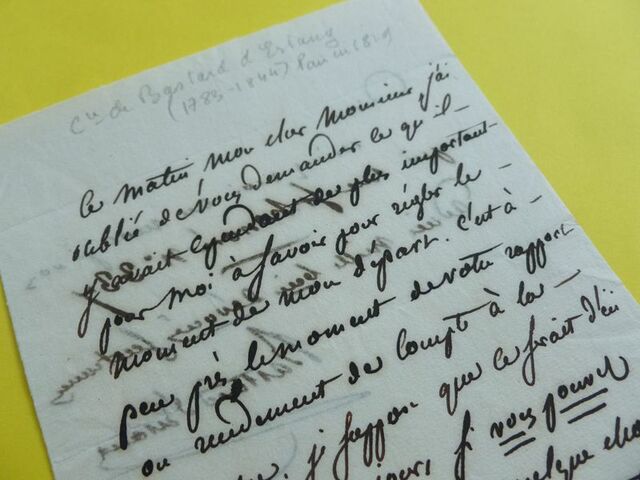 Cte de Bastard d'Estang
(1783-1844) Pair in 1819
Ce matin mon cher Monsieur j'ai
oublié de vous demander ce qu'il-
y avait cependant de plus important-
pour moi à Savoir pour régler le-
moment de mon départ. C'est à-
peu près le moment de votre rapport
ou rendement de Compte à la-
j'suppose que ce serait d'ici
jours, si vous pouvez
quelque chose